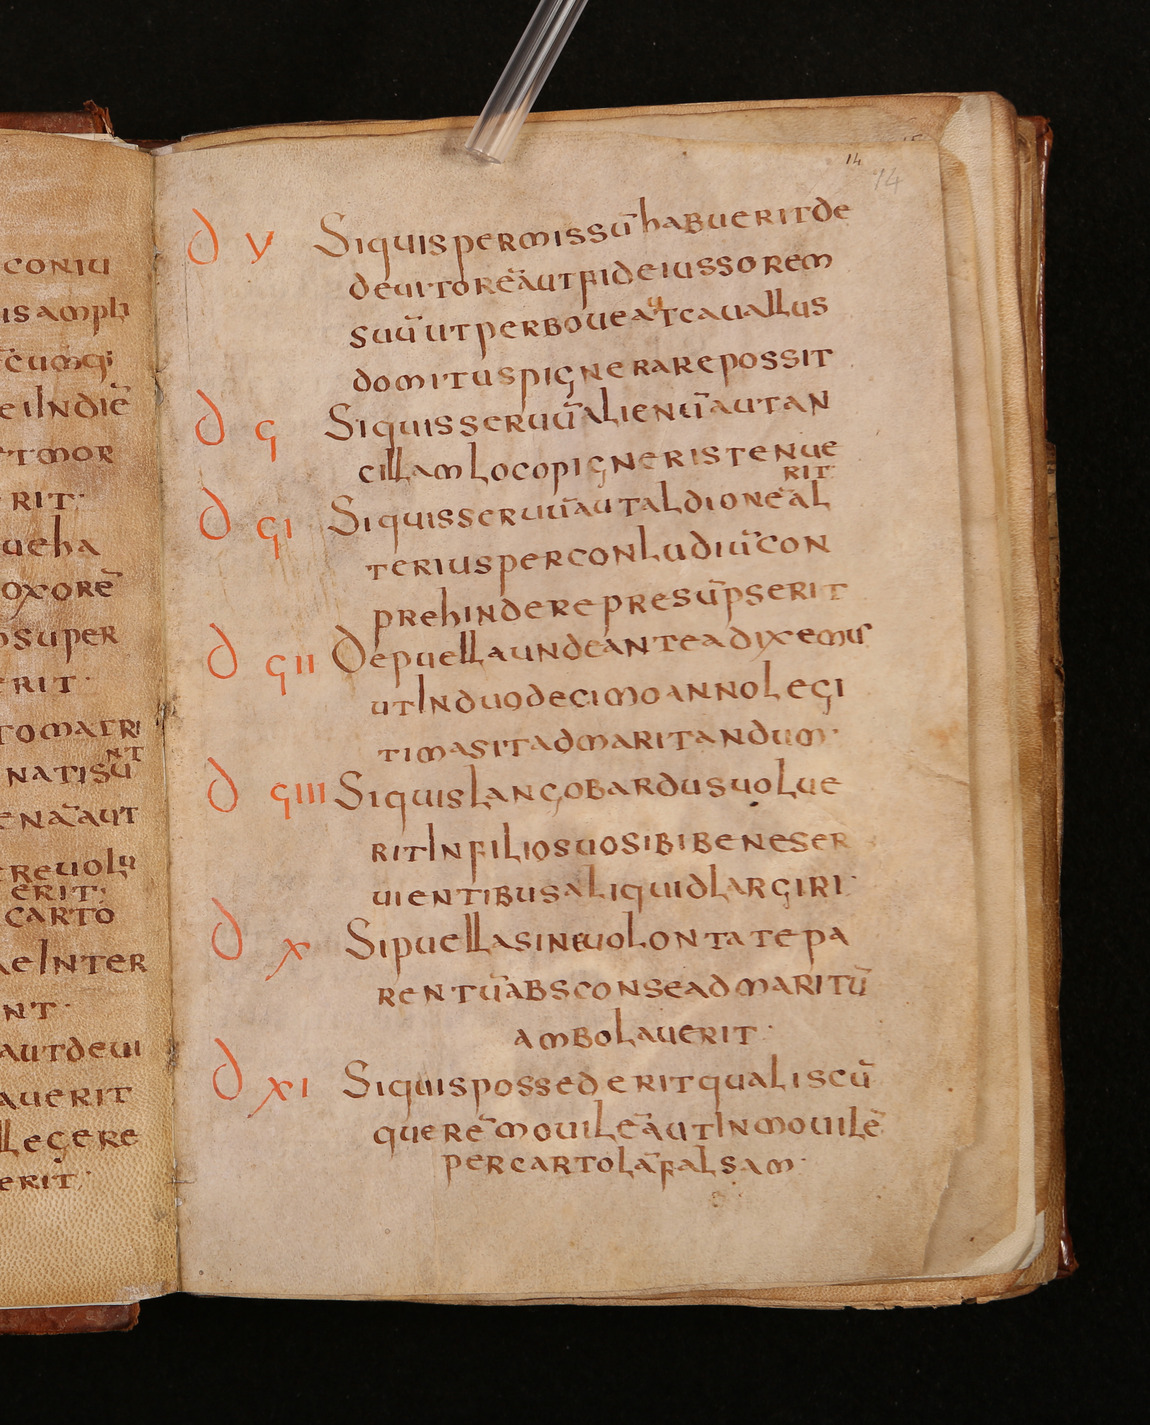 CONIU
IS AMPLI
CŪMQ;
E INDIĒ
ET MOR
RIT·
UEHA
OXORĒ
SUPER
ERIT·
TO MATRI
NT
NATI SŪ
ENĀ AUT
ERE UOLU
ERIT·
CARTO
AE INTER
NT·
AUT DE UI
AUERIT
LLEGERE
ERIT·
14
14
D V Siquis permissū habuerit de
deuitorē aut fideiussorem
suū ut per boue aut cauallus
domitus pignerare possit
D ϛ Siquis seruū alienū aut an
cillam loco pigneris tenue
rit·
D ϛI Siquis seruū aut aldionē al
terius per conludiū con
prehindere presūpserit
D ϛII De puella unde antea diximus
ut in duodecimo anno legi
tima sit ad maritandum·
D ϛIII Siquis langobardus uolue
rit in filio suo sibi bene ser
uientibus aliquid largiri·
D X Si puella sine uolontate pa
rentū absconse ad maritū
ambolauerit·
D XI Siquis possederit qualiscū
que rē mouilē aut inmouilē
per cartolā falsam·